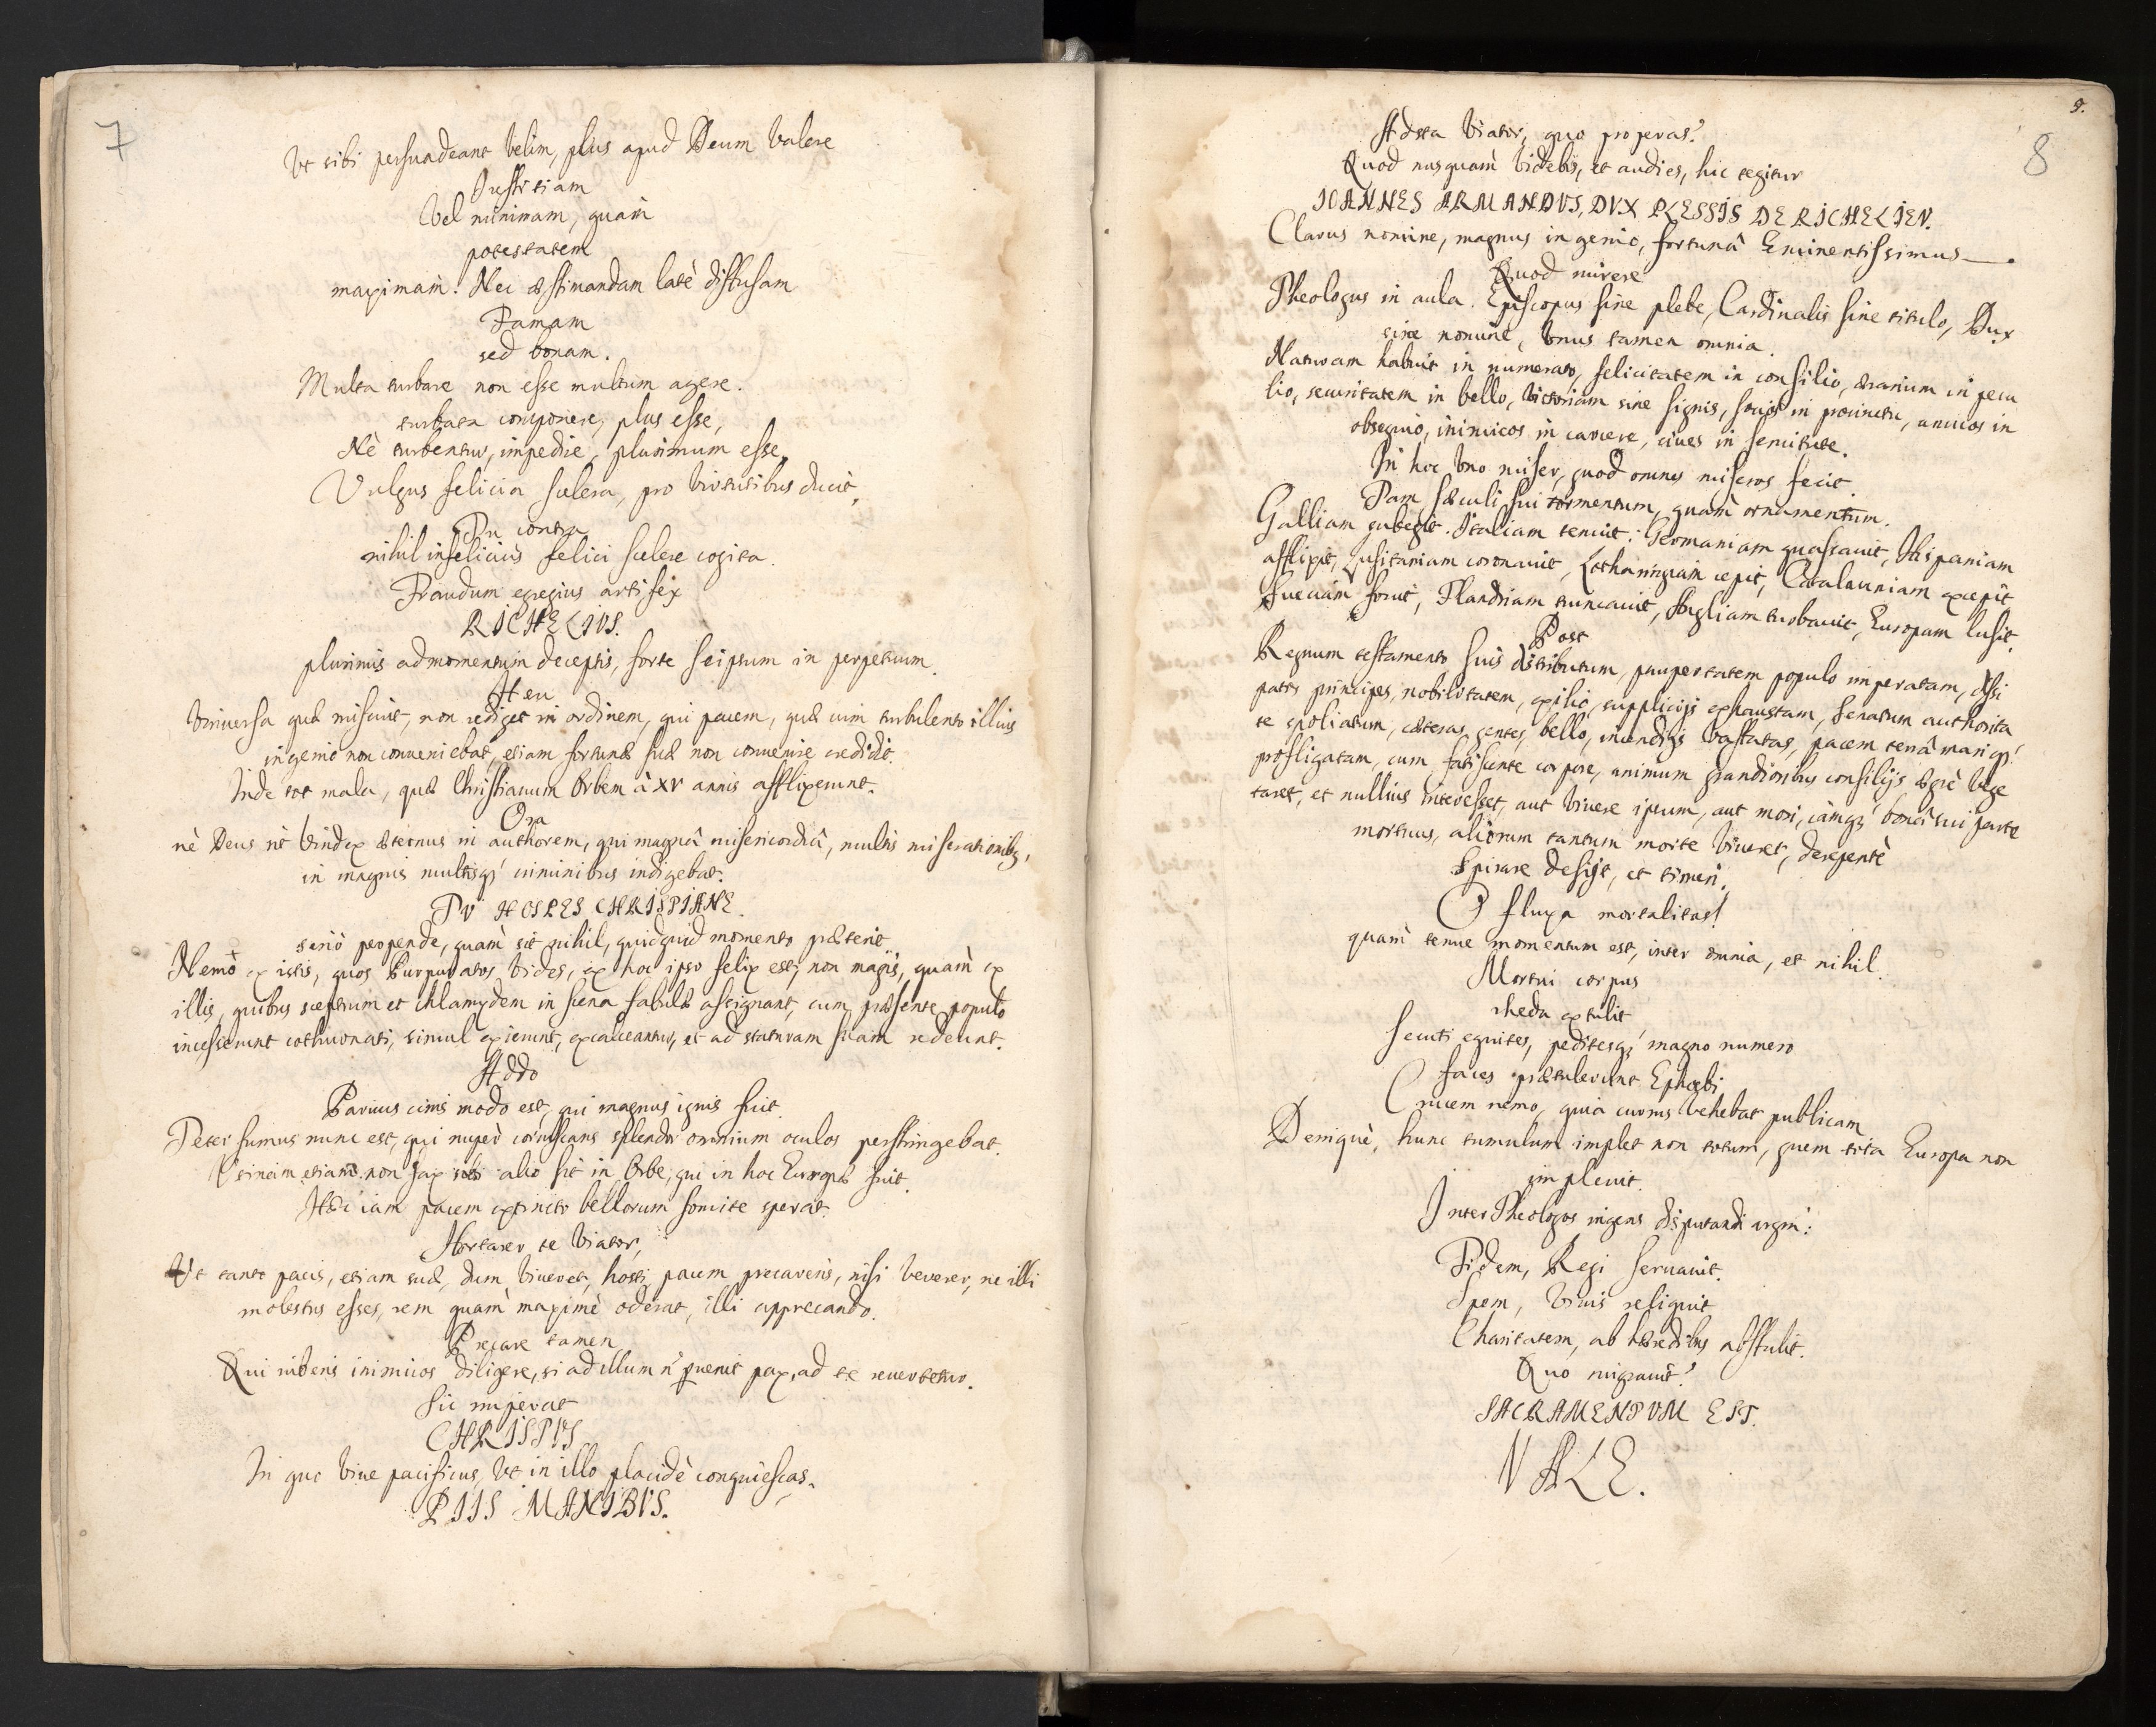 7
Vt sibi persuadeant velim, plus apud Deum valere
Justitiam
Vel minimam, quàm
potestatem
maximam. Nec æstimandam latè diffusam
Famam
sed bonam.
Multa turbare non esse multum agere.
turbata componere, plus esse,
Nè turbentur, impedire, plurimum esse,
Vulgus felicia scelera, pro virtutibus ducit,
Tu contra
nihil infelicius felici scelere cogita.
Fraudum egregius artifex
RICHELIVS.
plurimis ad momentum deceptis, forte seipsum in perpetuum.
Heu
Vniuersa quæ miscuit, non rediget in ordinem, qui pacem, quæ cum turbulento illius
ingenio non conueniebat, etiam fortunæ suæ non conuenire credidit.
Inde tot mala, quæ Christianum Orbem à XV annis afflixerunt.
Ora
nè Deus sit vindex æternus in authorem, qui magnâ misericordiâ, multis miserationibꝫ,
in magnis multisqꝫ criminibus indigebat.
TV HOSPES CHRISTIANE.
seriò perpende, quàm sit nihil, quidquid momento præterit.
Nemo ex istis, quos Purpuratos vides, ex hoc ipso felix est, non magis, quàm ex
illis, quibus sceptrum et chlamydem in scena fabulæ assignant, cum præsente populo
incesserunt cothurnati, simul exierunt, excalceantur, et ad staturam suam redeunt.
Addo
Paruus cinis modo est, qui magnus ignis fuit.
Teter fumus nunc est, qui nuper coruscans splendor omnium oculos perstringebat.
Vtinam etiam non fax alio sit in Orbe, qui in hoc Europæ fuit.
Hæc iam pacem extincto bellorum fomite sperat.
Hortarer te Viator,
Vt tanto pacis, etiam suæ, dum viueret, hosti pacem precareris, nisi vererer, ne illi
molestus esses, rem quàm maximè oderat, illi apprecando.
Precare tamen
Qui iuberis inimicos diligere, si ad illum n̄ ꝑuenit pax, ad te reuertetur.
Sic imperat
CHRISTVS
In quo viue pacificus, vt in illo placidè conquiescas.
PIIS MANIBVS.
9.
8
Adsta Viator, quo properas?
Quod nusquam videbis, et audies, hic tegitur
IOANNES ARMANDVS, DVX PLESSIS DE RICHELIEV.
Clarus nomine, magnus ingenio, fortunâ Eminentissimus.
Quod mirere
Theologus in aula. Episcopus sine plebe, Cardinalis sine titulo, Dux
sine nomine, vnus tamen omnia.
Naturam habuit in numerato, felicitatem in consilio, ærarium in pecu
lio, securitatem in bello, victoriam sine signis, socios in procinctu, amicos in
obsequio, inimicos in carcere, ciues in seruitute.
In hoc vno miser, quod omnes miseros fecit.
Tam sæculi sui tormentum, quàm ornamentum.
Galliam subegit. Italiam tenuit: Germaniam quassauit, Hispaniam
afflixit, Lusitaniam coronauit, Lotharingiam cepit, Catalauniam excepit
Sueciam fouit, Flandriam truncauit, Angliam turbauit, Europam lusit,
Post
Regnum testamento suis distributum, paupertatem populo imperatam, dissi
patos principes, nobilitatem, exilio, supplicijs exhaustam, Senatum authorita
te spoliatum, cæteras gentes, bello, incendijs vastatas, pacem terrâ mariqꝫ
profligatam, cum fatiscente corpore, animum grandioribus consilijs ægrè vege
taret, et nullius interesset, aut viuere ipsum, aut mori, iamqꝫ bonâ sui parte
mortuus, aliorum tantum morte viueret, derepentè
Spirare desijt, et timeri.
O fluxa mortalitas!
quàm tenue momentum est, inter omnia, et nihil.
Mortui corpus
rheda extulit
Secuti equites, peditesqꝫ magno numero
faces prætulerunt Ephœbi
Crucem nemo, quia currus vehebat publicam
Deniquè, hunc tumulum implet non totum, quem tota Europa non
impleuit.
Inter Theologos ingens disputandi argm̄:
Fidem, Regi seruauit.
Spem, viuis reliquit
Charitatem, ab hæredibus abstulit.
Quo migrauit?
SACRAMENTVM EST.
VALE.